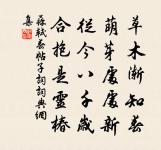 草木漸知春
萌芽處處新
從今八千歲
合抱是靈椿
蘇軾春帖子詞詞典網
集